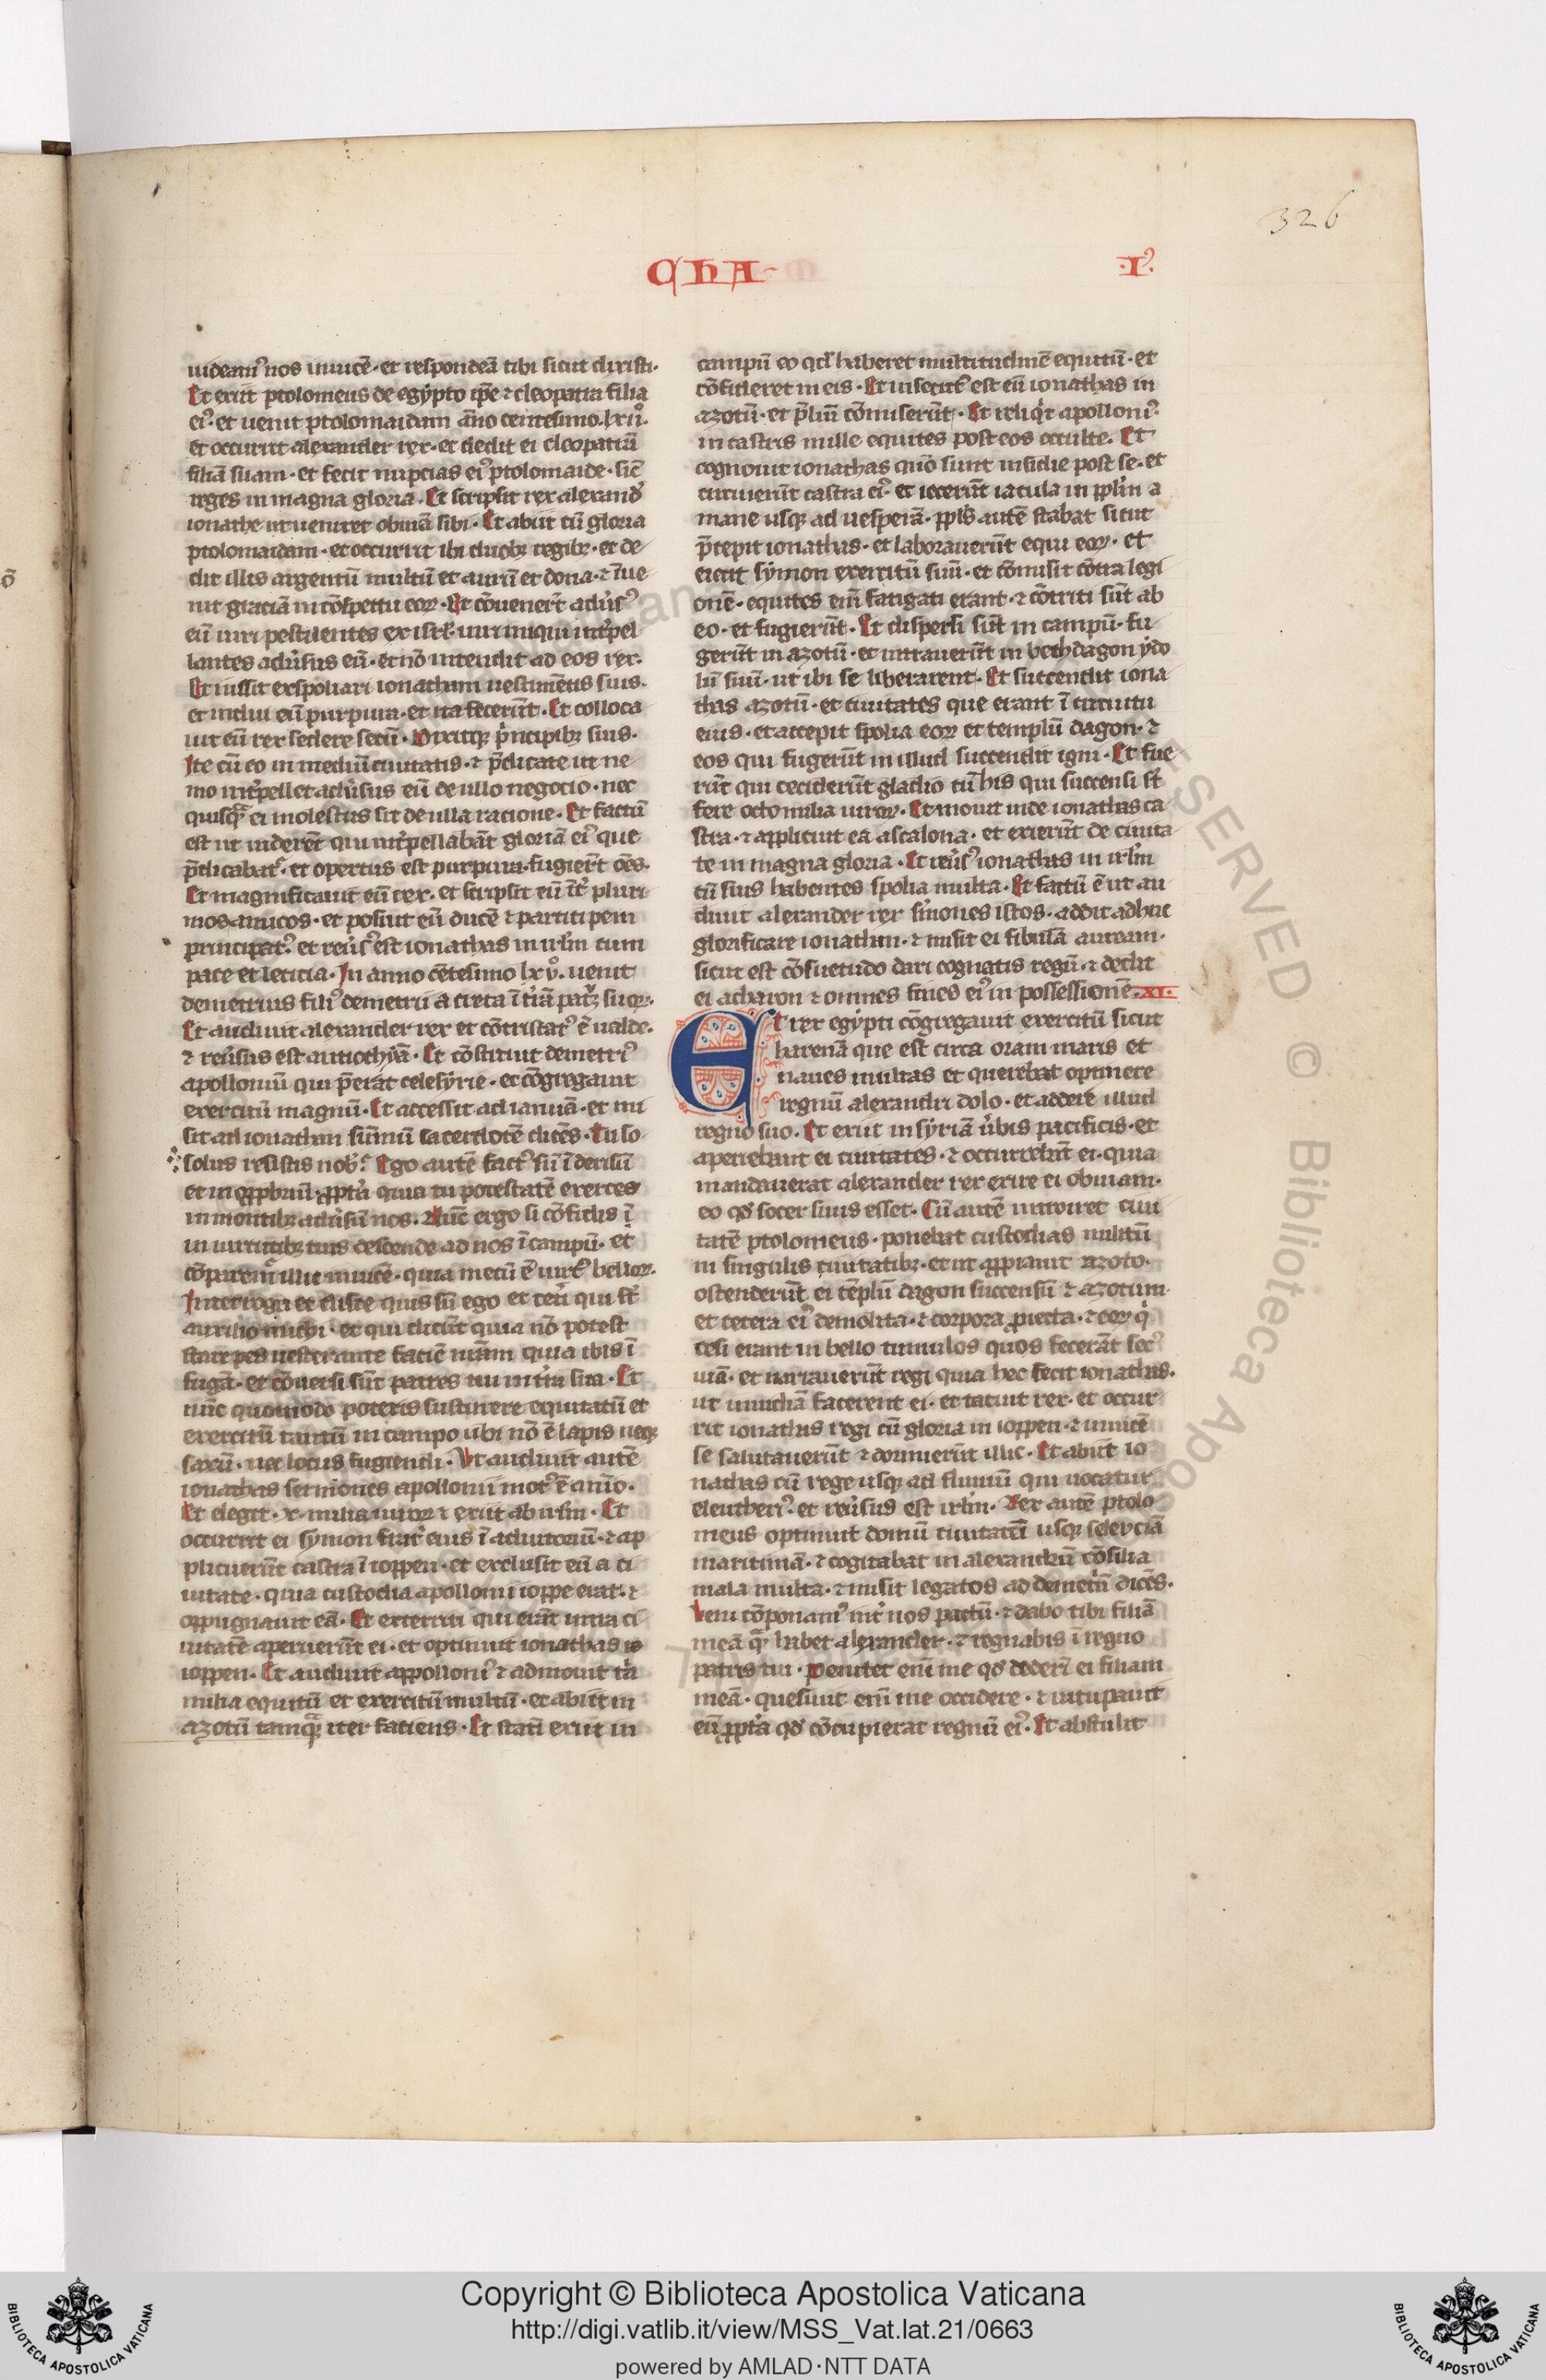 326
CHA
.I⁹.
uideamꝰ nos inuicē · et respondeā tibi sicut dixisti ·
Et exiit ptolomeus de egẏpto ip̄e ⁊ cleopatra filia
eiꝰ · et uenit ptolomaidam āno centesimo · lxii⁰ ·
et occurrit alexander rex · et dedit ei cleopatrā
filiā suam · et fecit nupcias eiꝰ ptolomaide · sic̄
reges in magna gloria . Et scripsit rex alexand̕
ionathe ut ueniret obuiā sibi · Et abiit cū gloria
ptolomaidam · et occurrit ibi duobꝫ regibꝫ · et de
dit illis argentū multū et aurū et dona · ⁊ īue
nit graciā in cōspectu eoꝝ · Et cōuener̄t adu̕sꝰ
eū uiri pestilentes ex isrl̕ · uiri iniqui int̕pel
lantes adu̕sus eū · et nō intendit ad eos rex .
Et iussit exspoliari ionatham uestimētis suis .
et indui eū purpura · et ita fecerūt . Et colloca
uit eū rex sedere secū . Dixitqꝫ p̕ncipibꝫ suis .
Ite cū eo in mediū ciuitatis · ⁊ p̄dicate ut ne
mo int̕pellet adu̕sus eū de ullo negocio · nec
quisqᷓ ei molestus sit de ulla racione . Et factū
est ut uiderēt qui int̕pellabāt gloriā eiꝰ que
p̄dicabat̕ · et opertus est purpura · fugier̄t oēs .
Et magnificauit eū rex · et scripsit eū īt̕ pluri
mos amicos · et posuit eū ducē ⁊ participem
principatꝰ · et reu̕sꝰ est ionathas in irl̕m cum
pace et leticia . In anno cētesimo lxv⁰ . uenit
demetrius filiꝰ demetrii a creta ī t̕rā patꝝ suoꝝ .
Et audiuit alexander rex et cōtristatꝰ ē ualde .
⁊ reu̕sus est antiochẏā . Et cōstituit demetriꝰ
apolloniū qui p̄erat celesẏrie · et cōgregauit
exercitū magnū . Et accessit ad iamnā · et mi
sit ad ionathan sūmū sacerdotē dicēs . Tu so
solus resistis nob̕ . Ego autē factꝰ sū ī derisū
et in opprobriū · ppt̕a quia tu potestatē exerces
in montibꝫ adu̕sū nos . Nūc ergo si cōfidis ī
in uirtutibꝫ tuis descende ad nos ī campū · et
cōparem̕ illic inuicē · quia mecū ē uirtꝰ belloꝝ .
Interroga et disce quis sū ego et cet̕i qui st̄
auxilio michi · et qui dicūt quia nō potest
stare pes uester ante faciē nr̄am quia ibis ī
fugā · et cōuersi sūt patres tui in t̕ra sua . Et
nūc quomodo poteris sustinere equitatū et
exercitū tantū in campo ubi nō ē lapis neqꝫ
saxū · nec locus fugiendi . Vt audiuit autē
ionathas sermones apollonii motꝰ ē anīo .
Et elegit · x · milia uiroꝝ ⁊ exiit ab irl̕m . Et
occurrit ei sẏmon frat̕ eius ī adiutoriū · ⁊ ap
plicuerūt castra ī ioppen · et exclusit eū a ci
uitate · quia custodia apollonii ioppe erat · ⁊
oppugnauit eā . Et exterriti qui erāt intra ci
uitatē aperuerūt ei · et optinuit ionathas io
ioppen . Et audiuit appolloniꝰ ⁊ admouit t̕a
milia equitū et exercitū multū · et abiit in
azotū tamqᷓ iter faciens . Et statī exiit in
campū eo qd̕ haberet multitudinē equitū · et
cōfideret in eis . Et insecutꝰ est eū ionathas in
azotū · et p̄liū cōmiserūt . Et reliq̕t apolloniꝰ
in castris mille equites post eos occulte . Et
cognouit ionathas qm̄ō sunt insidie post se · et
circuierūt castra eiꝰ · et iecerūt iacula in ppl̕m a
mane usqꝫ ad uesperā · ppl̕s autē stabat sicut
p̄cepit ionathas · et laborauerūt equi eoꝝ · et
eiecit sẏmon exercitū suū · et cōmisit cōtra legi
onē · equites em̄ fatigati erant · ⁊ cōtriti sūt ab
eo · et fugierūt . Et dispersi sūt in campū · fu
gerūt in azotū · et intrauerūt in bethdagon ẏdo
lū suū · ut ibi se liberarent . Et succendit iona
thas azotū · et ciuitates que erant ī circuitu
eius · et accepit spolia eoꝝ et templū dagon · ⁊
eos qui fugerūt in illud succendit igni . Et fue
rūt qui ceciderūt gladio cū his qui succensi st̄
fere octo milia uiroꝝ . Et mouit inde ionathas ca
stra · ⁊ applicuit ea ascalona · et exierūt de ciuita
te in magna gloria . Et reu̕sꝰ ionathas in irl̕m
cū suis habentes spolia multa . Et factū ē ut au
diuit alexander rex s̕mones istos · addit adhuc
glorificare ionathan · ⁊ misit ei fibulā auream ·
sicut est cōsuetudo dari cognatis regū · ⁊ dedit
ei acharon ⁊ omnes fines eiꝰ in possessionē . XI .
Et rex egẏpti cōgregauit exercitū sicut
harenā que est circa oram maris et
naues multas et querebat optinere
regnū alexandri dolo · et addere illud
regno suo . Et exiit in sẏriā u̕bis pacificis · et
aperiebant ei ciuitates · ⁊ occurrebāt ei · quia
mandauerat alexander rex exire ei obuiam ·
eo qd̕ socer suus esset . Cū autē introiret ciui
tatē ptolomeus · ponebat custodias militū
in singulis ciuitatibꝫ · et ut appropiauit azoto ·
ostenderūt ei tēplū dagon succensū ⁊ azotum
et cetera eiꝰ demolita · ⁊ corpora proiecta · ⁊ eoꝝ q̕
cesi erant in bello tumulos quos fecerāt secꝰ
uiā · et narrauerūt regi quia hec fecit ionathas .
ut inuidiā facerent ei · et tacuit rex · et occur
rit ionathas regi cū gloria in ioppen · ⁊ inuicē
se salutauerūt ⁊ dormierūt illic . Et abiit io
nathas cū rege usqꝫ ad fluuiū qui uocatur
eleutheriꝰ · et reu̕sus est irl̕m . Rex autē ptolo
meus optinuit domū ciuitatēī usqꝫ seleyciā
maritimā · ⁊ cogitabat in alexandrū cōsilia
mala multa · ⁊ misit legatos ad demet̕ū dicēs .
Veni cōponamꝰ int̕ nos pactū · ⁊ dabo tibi filiā
meā qᷓ habet alexander · ⁊ regnabis ī regno
patris tui · penitet em̄ me qd̕ dederī ei filiam
meā · quesiuit em̄ me occidere · ⁊ uitupauit
eū ppt̕a qd̕ cōcupierat regnū eiꝰ . Et abstulit
Copyright © Biblioteca Apostolica Vaticana
http://digi.vatlib.it/view/MSS_Vat.lat.21/0663
powered by AMLAD·NTT DATA
BIBLIOTECA APOSTOLICA VATICANA
BIBLIOTECA APOSTOLICA VATICANA